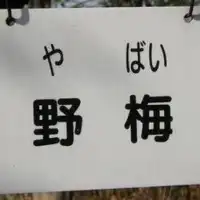 や ばい
野 梅